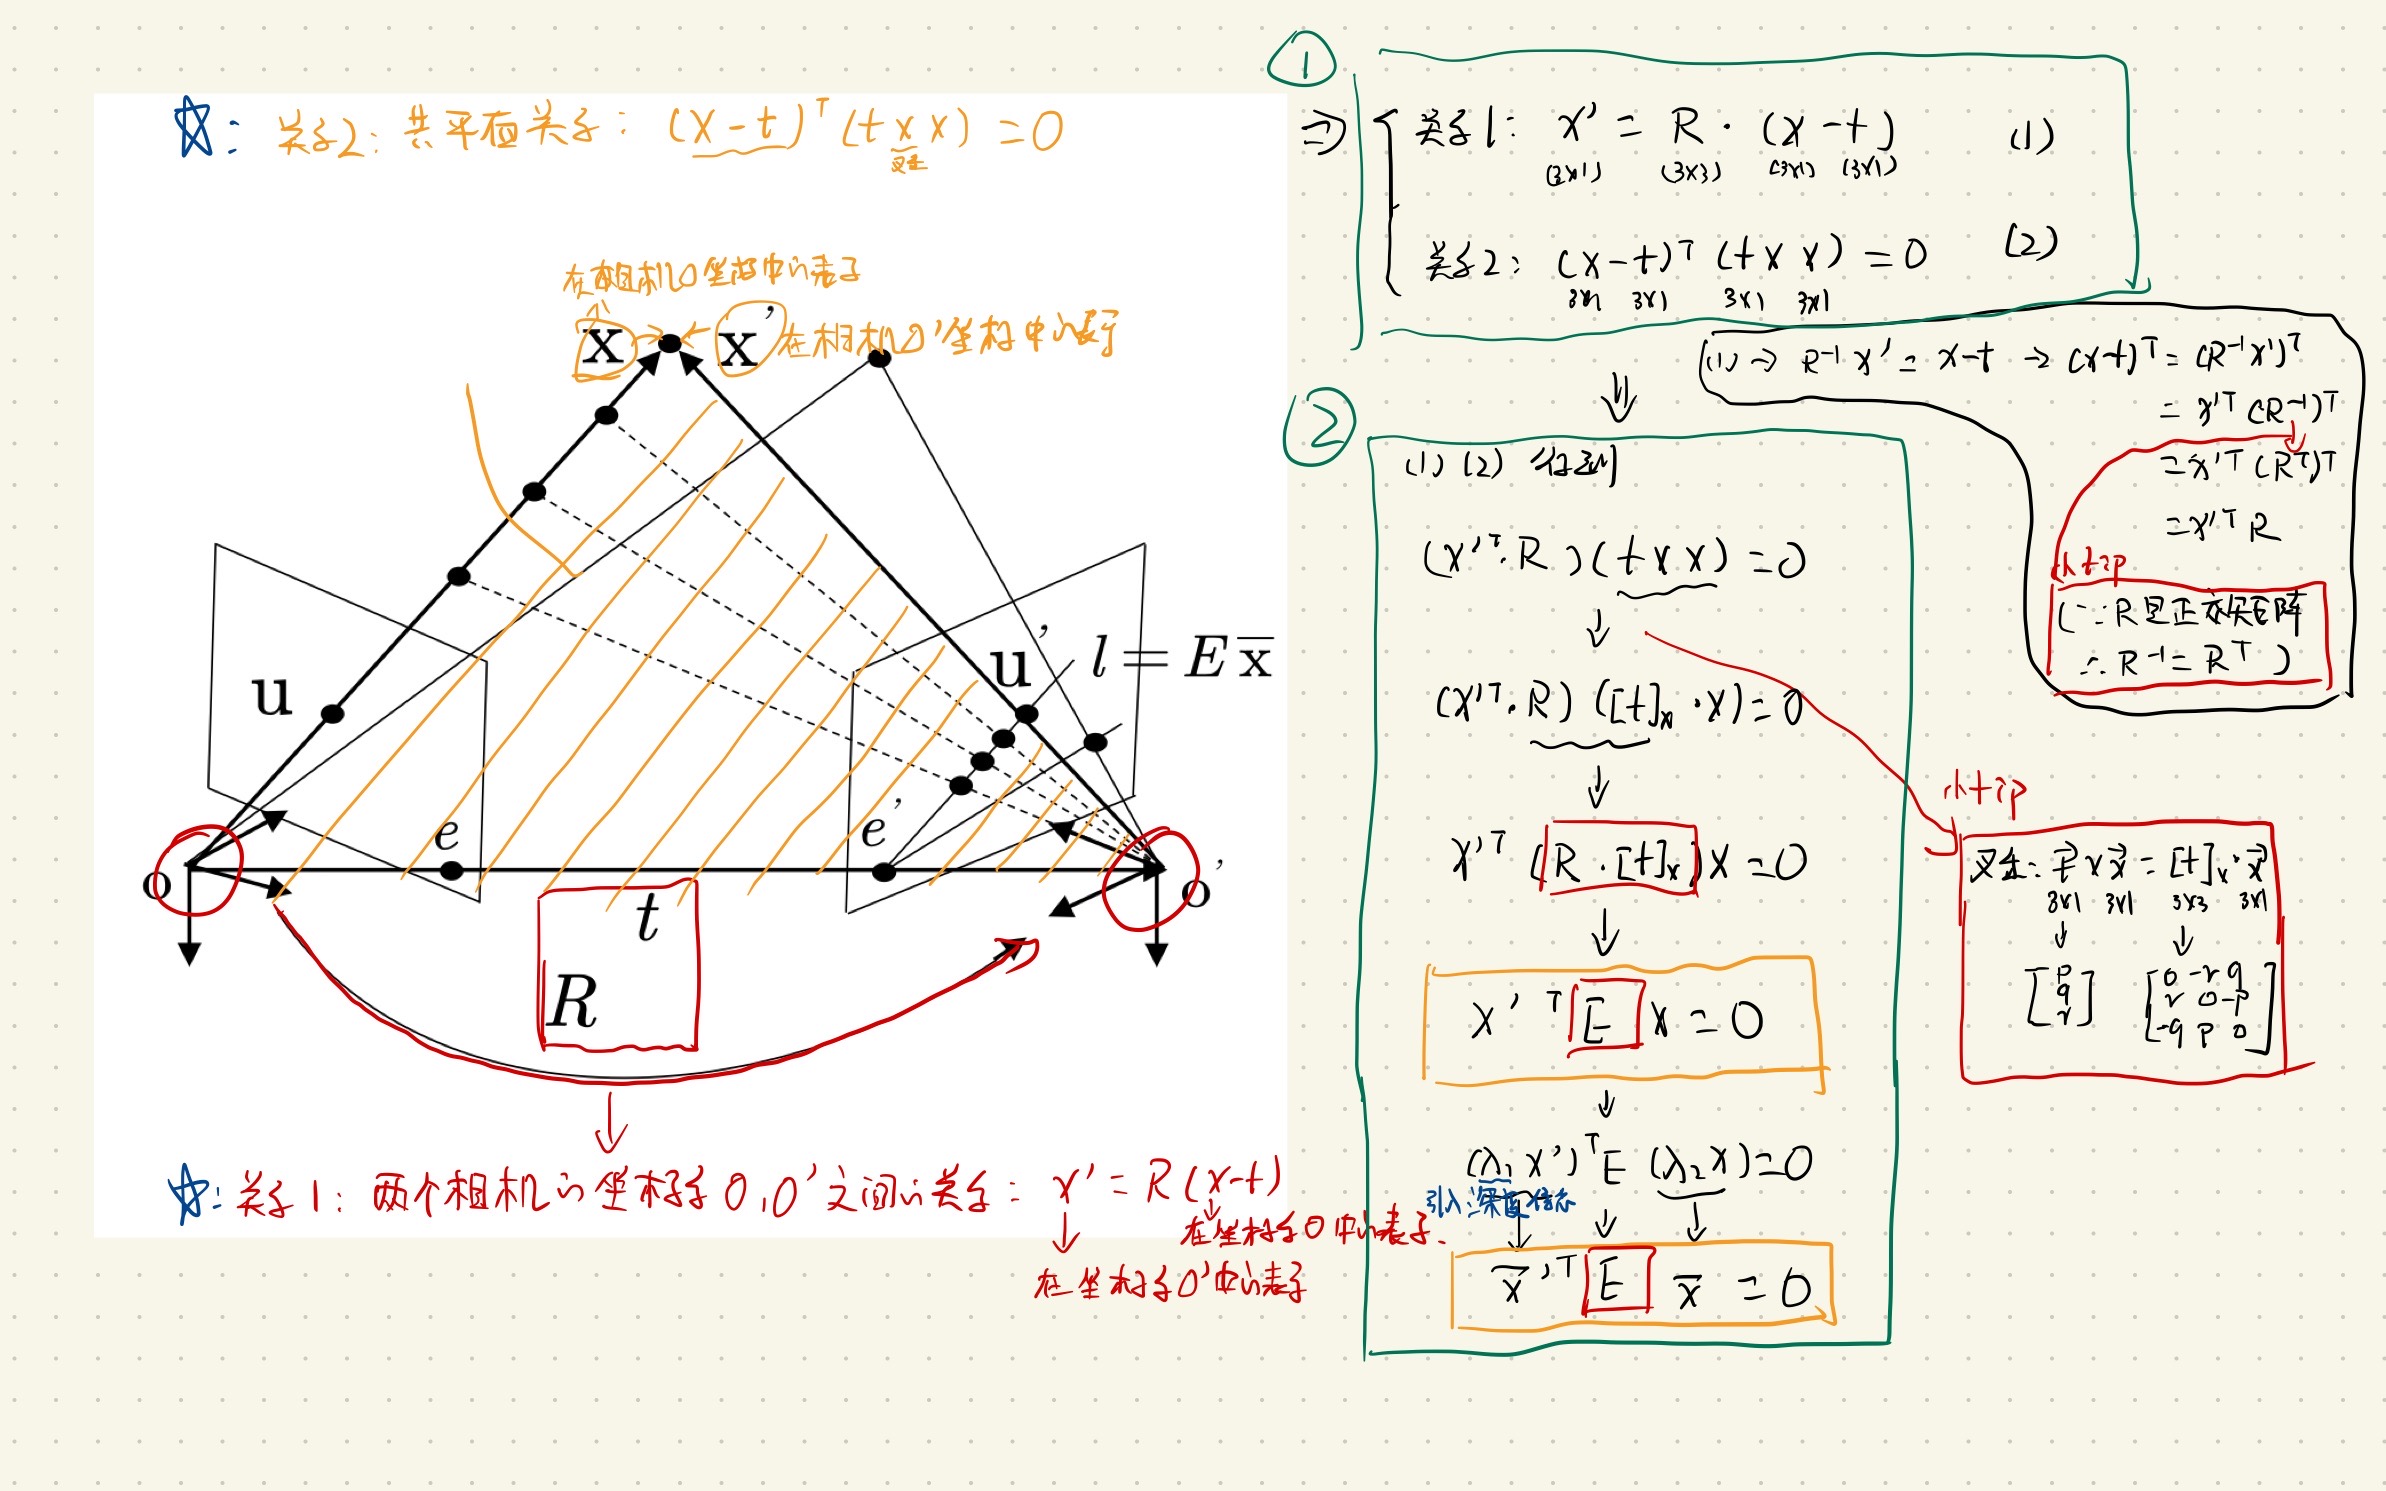 ☆: 关系2: 共平面关系: (x-t)ᵀ(t×x)=0
叉乘
在相机O坐标中的表示
x → ← x' 在相机O'坐标中的表示
u
u'
l = E x̄
e
e'
o
o'
t
R
☆: 关系1: 两个相机的坐标系O,O'之间的关系: x' = R(x-t)
在坐标系O中的表示.
在坐标系O'中的表示
①
⇒ { 关系1: x' = R · (x-t) (1)
(3x1) (3x3) (3x1) (3x1)
关系2: (x-t)ᵀ (t×x) = 0 (2)
3x1 3x1 3x1
(1) → R⁻¹x' = x-t → (x-t)ᵀ = (R⁻¹x')ᵀ
= x'ᵀ(R⁻¹)ᵀ
= x'ᵀ(Rᵀ)ᵀ
= x'ᵀR
小tip
(∵ R是正交矩阵
∴ R⁻¹ = Rᵀ )
⇓
②
(1) (2) 得到
(x'ᵀ·R)(t×x) = 0
↓
(x'ᵀ·R)([t]ₓ·x) = 0
↓
x'ᵀ(R·[t]ₓ)x = 0
↓
x'ᵀ E x = 0
↓
(λ₁x')ᵀE(λ₂x) = 0
引入深度信息
x̄'ᵀ E x̄ = 0
小tip
叉乘: t⃗ × x⃗ = [t]ₓ · x⃗
3x1 3x1 3x3 3x1
↓ ↓
[p q r] [0 -r q
r 0 -p
-q p 0]